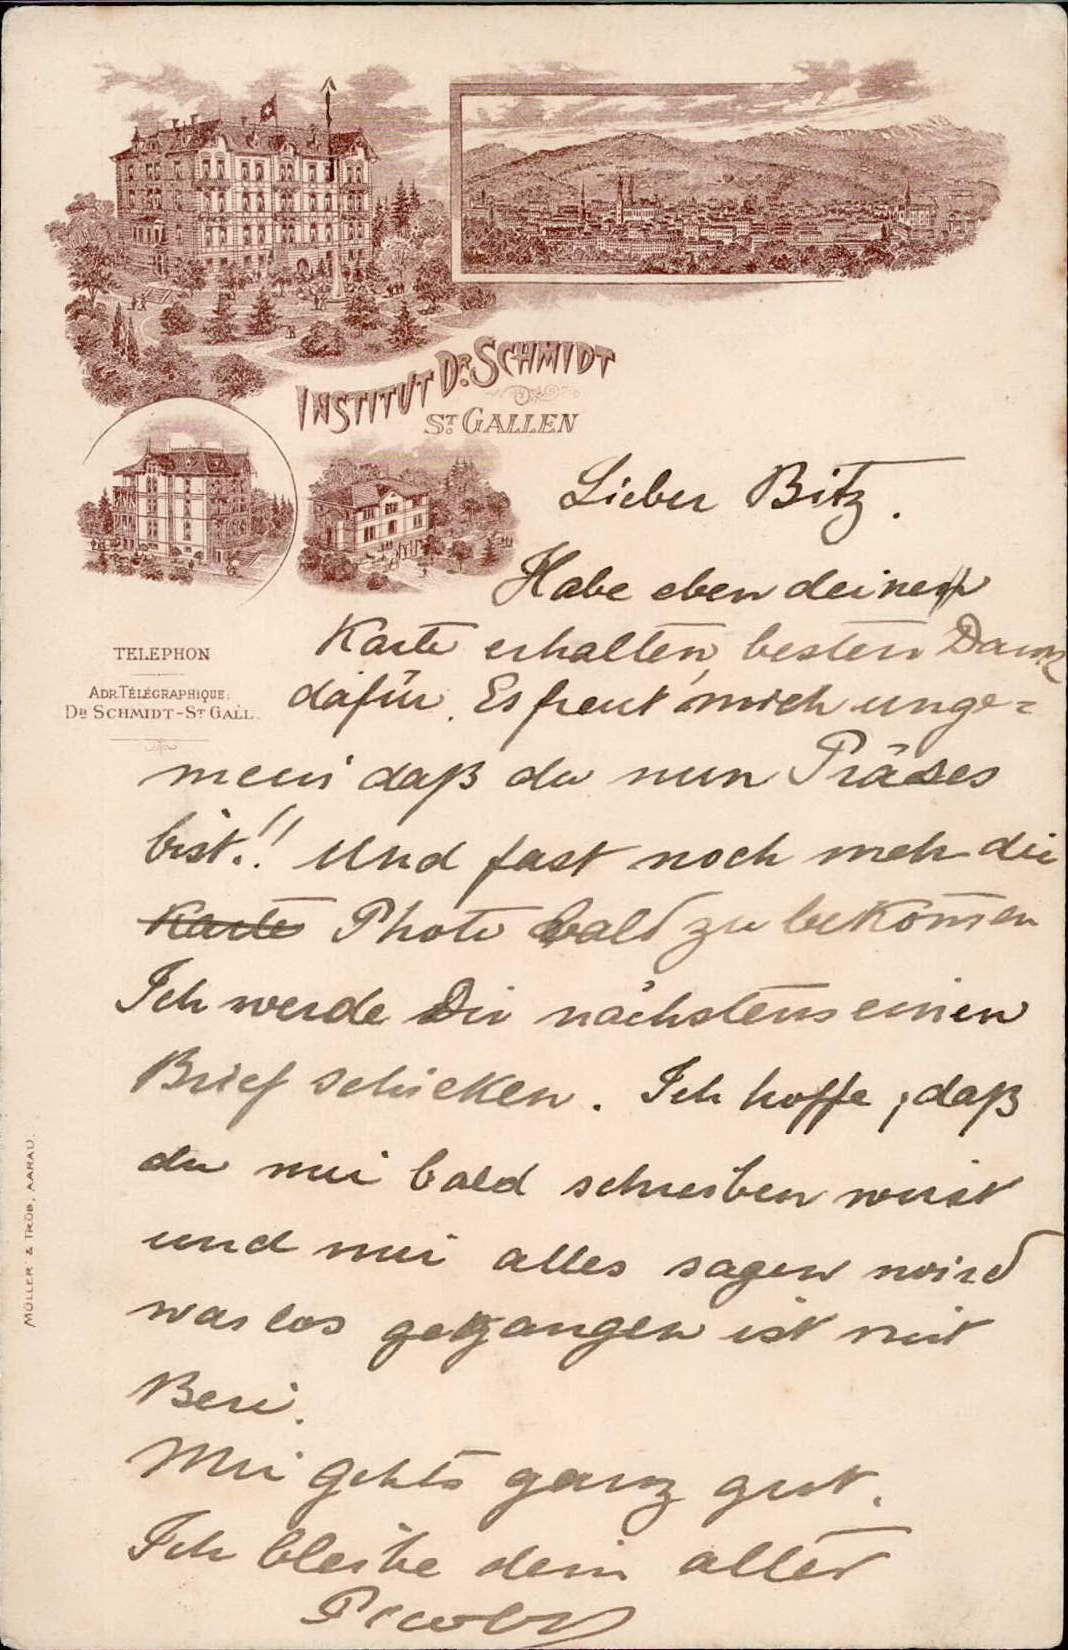 INSTITUT DR. SCHMIDT
ST. GALLEN
TELEPHON
ADR. TÉLÉGRAPHIQUE:
DR SCHMIDT-ST GALL.
MÜLLER & TRÜB, AARAU.
Lieber Bitz.
Habe eben deinen
Karte erhalten, besten Dank
dafür. Es freut mich unge=
mein daß du nun Präses
bist.!! Und fast noch mehr die
Karte Photo bald zu bekom̄en
Ich werde Dir nächstens einen
Brief schicken. Ich hoffe, daß
du mir bald schreiben wirst
und mir alles sagen wird
was los gegangen ist mit
Beri.
Mir gehts ganz gut.
Ich bleibe dein alter